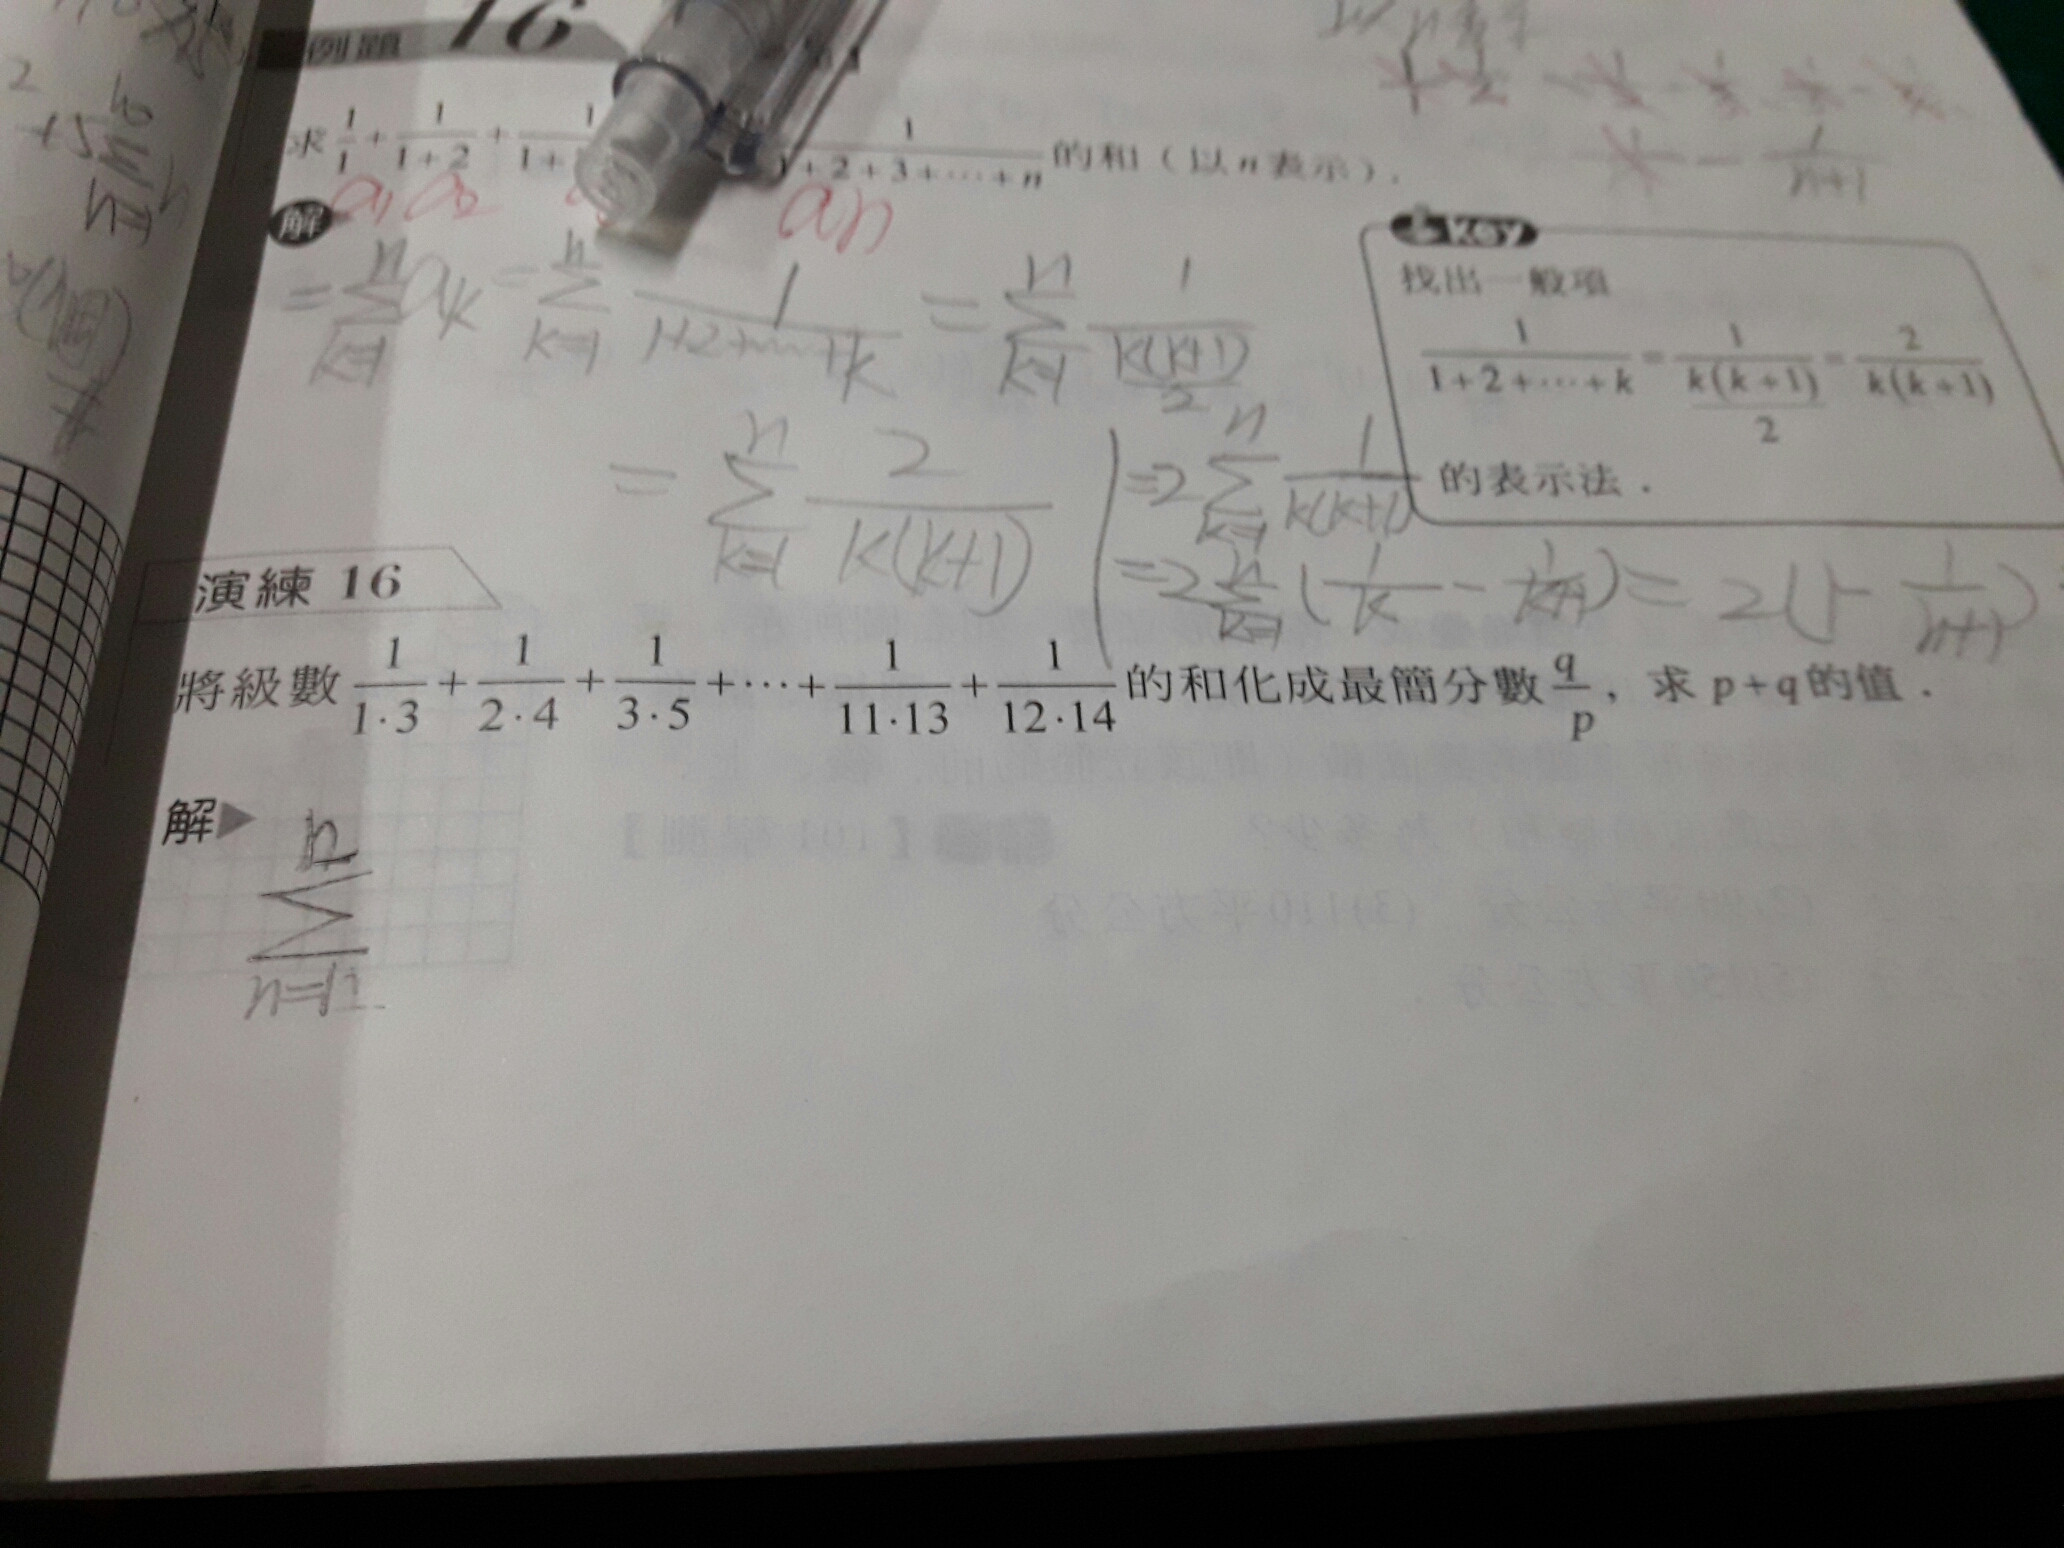 例題 16
求 1/1 + 1/(1+2) + 1/(1+ 1/(1+2+3+⋯+n) 的和（以 n 表示）.
解 a₁ a₂ aₙ
= Σ(k=1→n) aₖ = Σ(k=1→n) 1/(1+2+⋯+k) = Σ(k=1→n) 1/(k(k+1)/2)
= Σ(k=1→n) 2/(k(k+1))
= 2 Σ(k=1→n) 1/(k(k+1))
= 2 Σ(k=1→n) (1/k - 1/(k+1)) = 2(1 - 1/(n+1))
- 1/(n+1)
Key
找出一般項
1/(1+2+⋯+k) = 1/(k(k+1)/2) = 2/(k(k+1))
的表示法.
演練 16
將級數 1/(1·3) + 1/(2·4) + 1/(3·5) + ⋯ + 1/(11·13) + 1/(12·14) 的和化成最簡分數 q/p，求 p+q 的值.
解▶
Σ